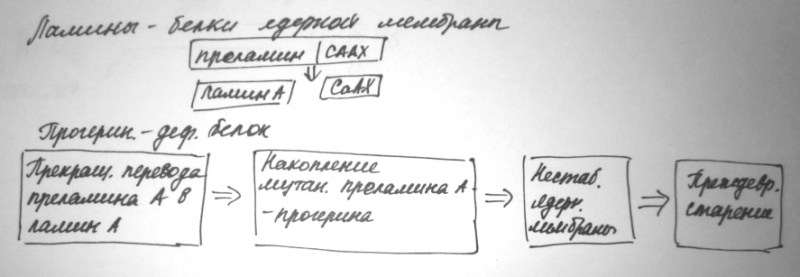 Ламины - белки ядерной мембраны
преламин | CAAX
ламин А CaAX
Прогерин. - деф. белок
Прекращ. перевода
преламина А в
ламин А
Накопление
мутан. преламина А -
- прогерина
Нестаб.
ядерн.
мембраны
Преждевр.
старение